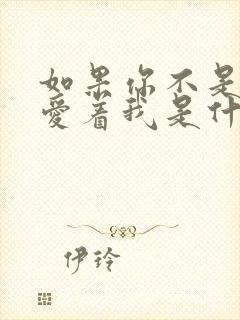 如果你不是
爱着我是什
伊玲